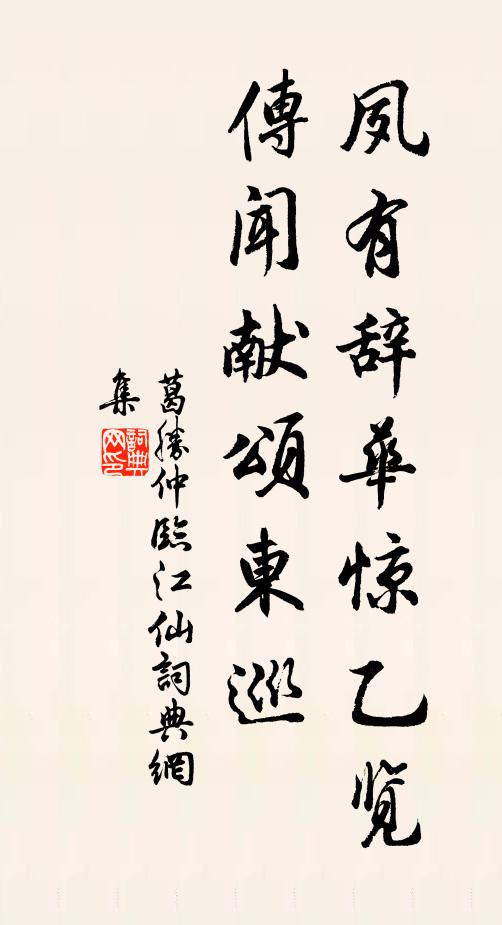 夙有辞華惊乙览
傳闻献頌東巡
葛勝仲臨江仙詞典網
集
詞典网印